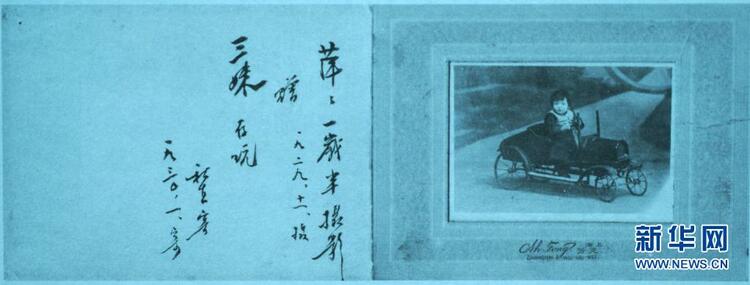 萍々一岁半摄影
赠 一九二九、十一、摄
三妹 存玩
秋生寄
一九三〇、一、寄
Ah Fong
新华网
WWW.NEWS.CN